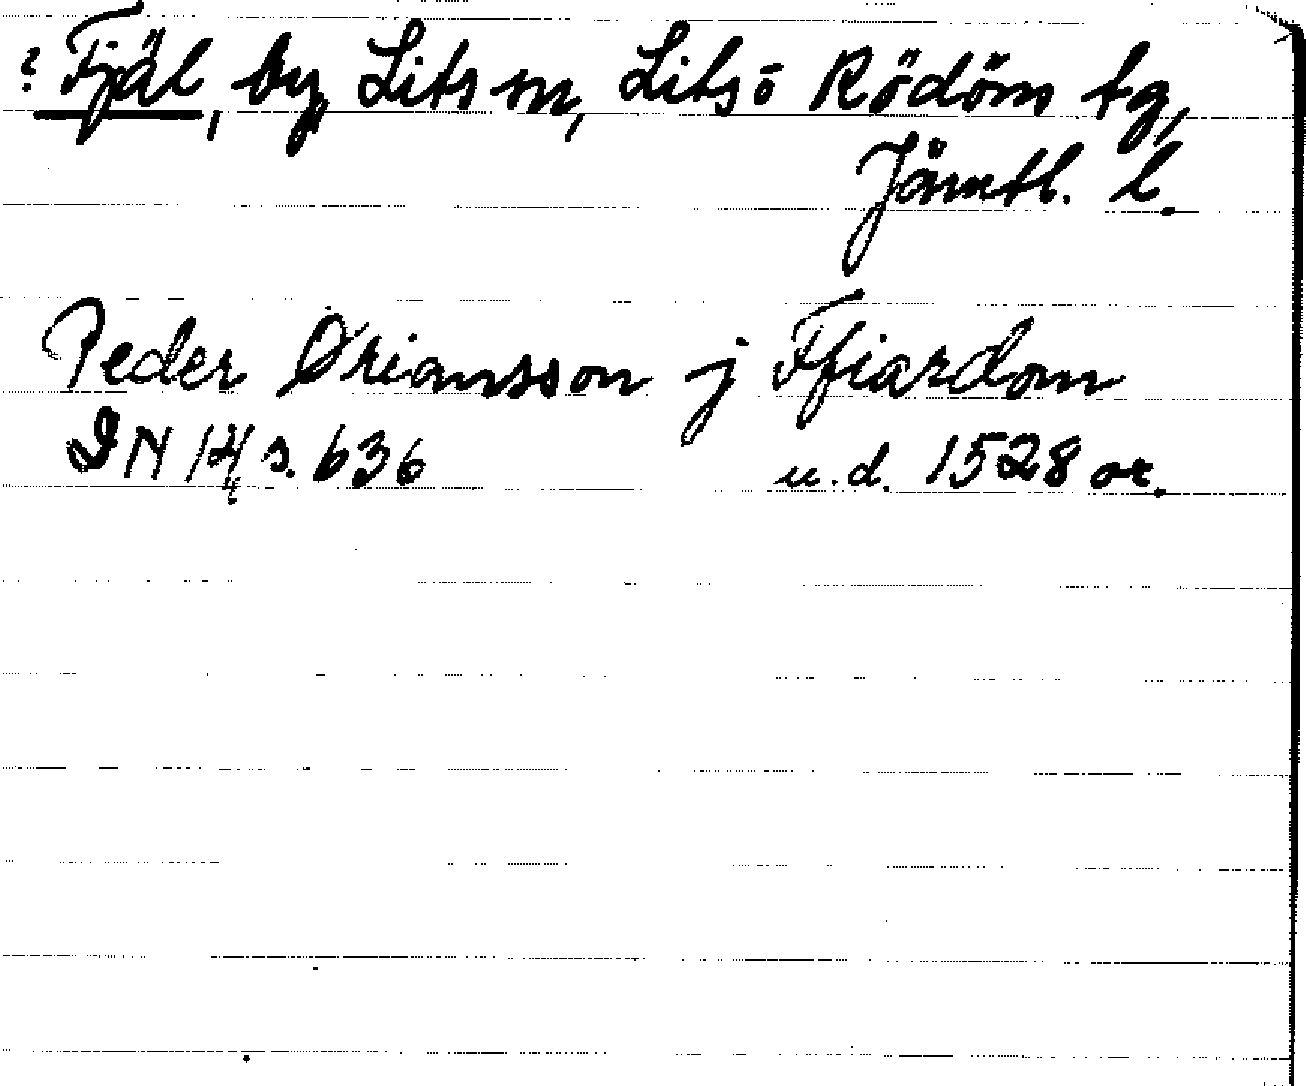 ? Fjäl, by, Lits sn, Lits o Rödöns tg,
Jämtl. l.
Peder Øriansson j Ffiardom
DN 14 s. 636 u.d. 1528 or.